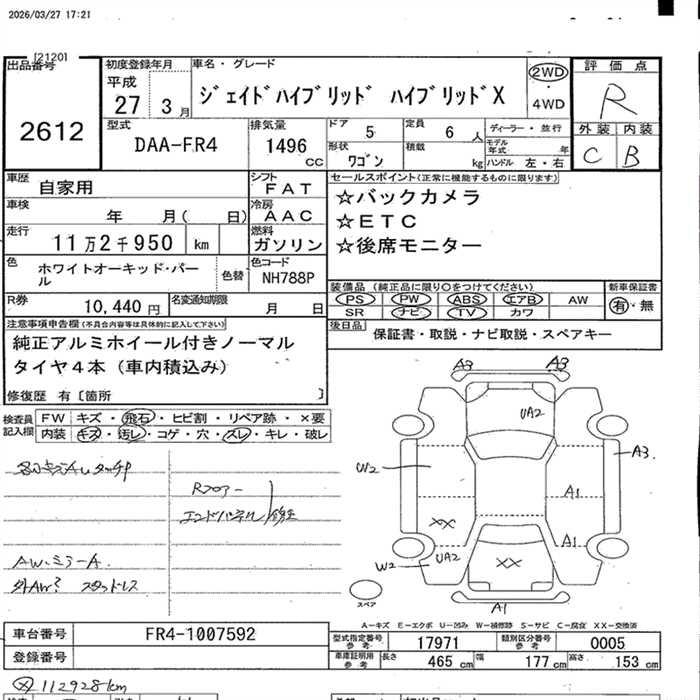 2026/03/27 17:21
[2120]
出品番号
2612
初度登録年月
平成
27 3 月
車名・グレード
ｼﾞｪｲﾄﾞﾊｲﾌﾞﾘｯﾄﾞ ﾊｲﾌﾞﾘｯﾄﾞX
2WD
・
4WD
評価点
R
外装 内装
C B
型式
DAA-FR4
排気量
1496 cc
ドア 5
定員 6 人
形状 ﾜｺﾞﾝ
積載 kg
ディーラー・並行
モデル年式 年
ハンドル 左・右
車歴 自家用
シフト FAT
車検 年 月( 日)
冷房 AAC
走行 11万2千950 km
燃料 ガソリン
色 ホワイトオーキッド・パール
色替
色コード NH788P
R券 10,440 円
名変通知期限 月 日
セールスポイント(正常に機能するものに限ります)
☆バックカメラ
☆ETC
☆後席モニター
装備品 (純正品に限り○をつけてください)
PS PW ABS エアB AW
SR ナビ TV カワ
新車保証書
有・無
後日品 保証書・取説・ナビ取説・スペアキー
注意事項申告欄(不具合内容等は具体的に記入して下さい)
純正アルミホイール付きノーマル
タイヤ4本(車内積込み)
修復歴 有〔箇所 〕
検査員記入欄
FW キズ・飛石・ヒビ割・リペア跡・×要
内装 キズ・汚レ・コゲ・穴・スレ・キレ・破レ
Rフロアー
エンドパネル
AW.ミラーA.
外AW? スタッドレス
A3 A3
UA2
W2
A3.
A1
XX
A1
W2 UA2 XX
A1
スペア
A－キズ E－エクボ U－凹み W－補修跡 S－サビ C－腐食 XX－交換済
車台番号 FR4-1007592
登録番号
型式指定番号参考 17971
類別区分番号参考 0005
車庫証明用参考 長さ 465 cm 幅 177 cm 高さ 153 cm
112928km